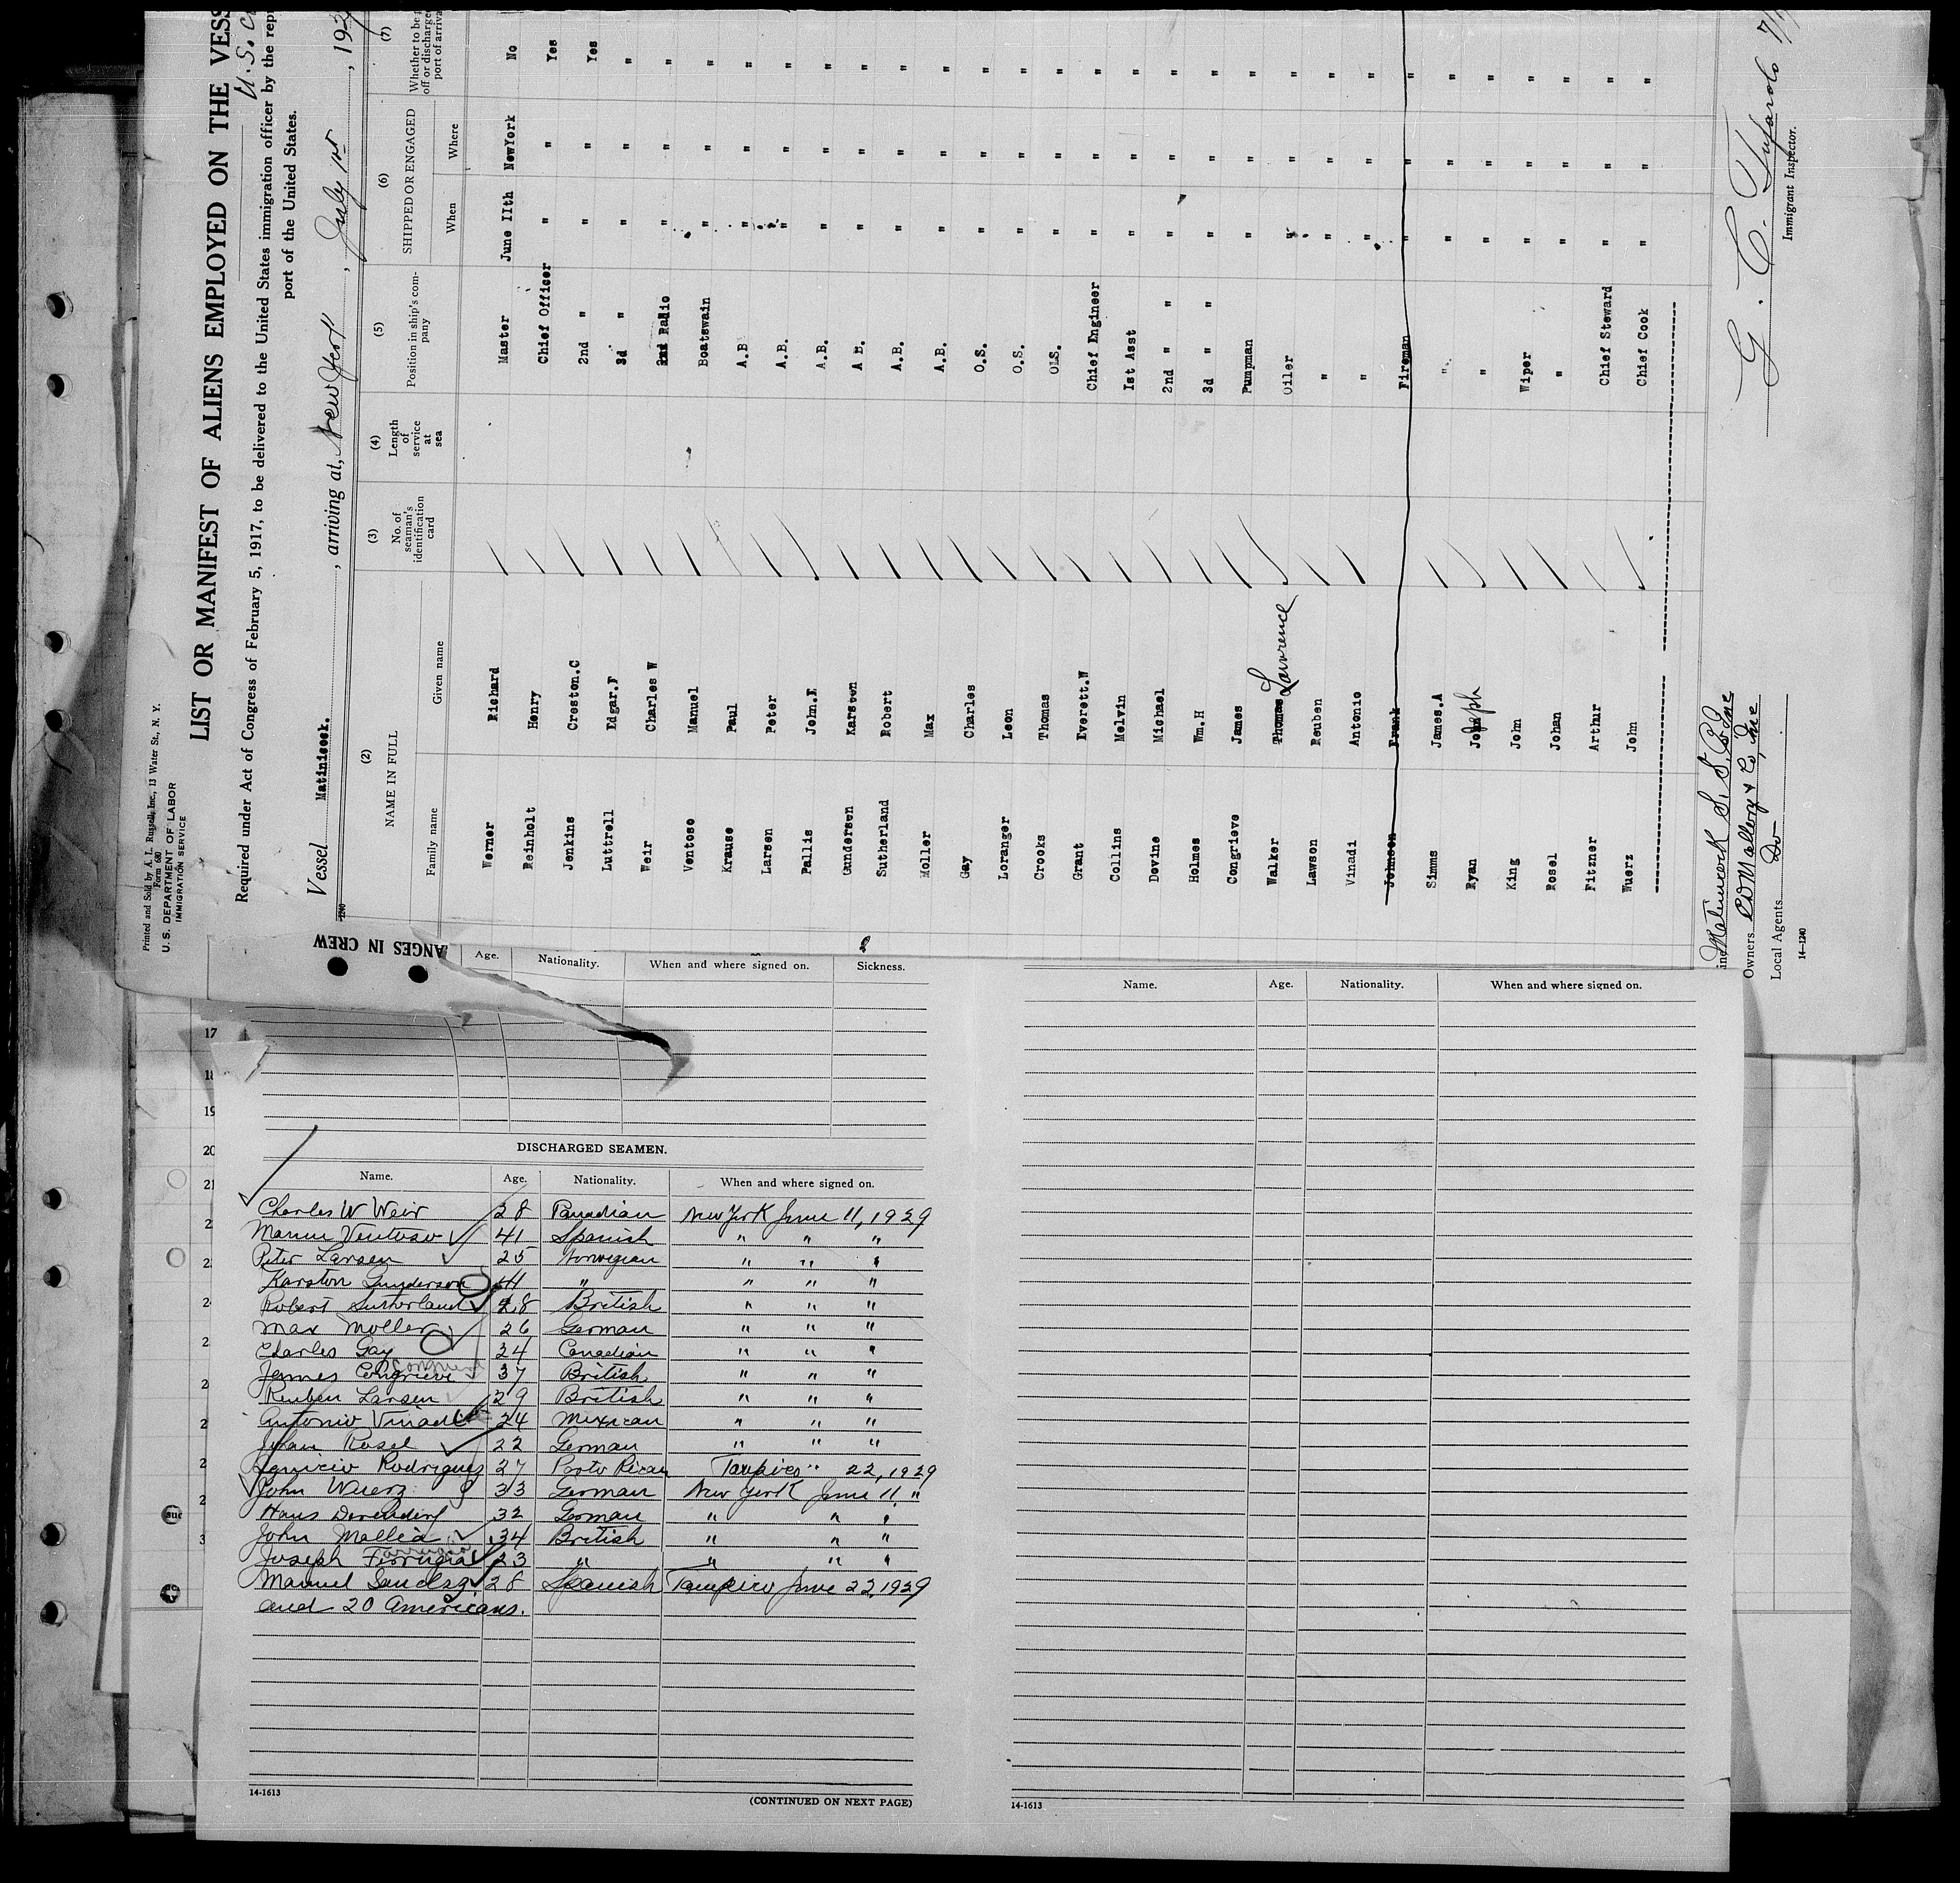 Printed and Sold by A. L. Russell, Inc., 13 Water St., N. Y.
Form 680
U. S. DEPARTMENT OF LABOR
IMMIGRATION SERVICE
LIST OR MANIFEST OF ALIENS EMPLOYED ON THE VESS
U.S.
Required under Act of Congress of February 5, 1917, to be delivered to the United States immigration officer by the repr
port of the United States.
Vessel Matinicock. , arriving at, New York , July 1st , 192
(2) (3) (4) (5) (6) (7)
NAME IN FULL
Family name Given name
No. of seaman's identification card
Length of service at sea
Position in ship's company
SHIPPED OR ENGAGED
When Where
Whether to be
off or discharged
port of arriva
Werner Richard Master June 11th NewYork No
Reinholt Henry Chief Officer " " Yes
Jenkins Creston.C 2nd " " " Yes
Luttrell Edgar.F 3d " " " "
Weir Charles W 2nd Radio " " "
Ventose Manuel Boatswain " " "
Krause Paul A.B " " "
Larsen Peter A.B. " " "
Pallis John.E A.B. " " "
Gundersen Karsten A B. " " "
Sutherland Robert A.B. " " "
Moller Max A.B. " " "
Gay Charles O.S. " " "
Loranger Leon O.S. " " "
Crooks Thomas O.S. " " "
Grant Everett.W Chief Engineer " " "
Collins Melvin 1st Asst " " "
Devine Michael 2nd " " " " "
Holmes Wm.H 3d " " " " "
Congrieve James Pumpman " " "
Walker Thomas Lawrence Oiler " " "
Lawson Reuben " " " "
Vinadi Antonio " " " "
Johnson Frank Fireman " " "
Simms James.A " " " "
Ryan Joseph " " " "
King John Wiper " " "
Rosel Johan " " " "
Fitzner Arthur Chief Steward " " "
Wuerz John Chief Cook " " "
Matinicock S. S. Co Inc
Owners C D Mallory & Co, Inc
Local Agents Do
14—1240
G. C. Tufarolo 7/1
Immigrant Inspector.
ANGES IN CREW
Age. Nationality. When and where signed on. Sickness.
17
18
19
20
21
DISCHARGED SEAMEN.
Name. Age. Nationality. When and where signed on.
Charles W Weir 28 Canadian New York June 11, 1929
Manuel Ventoso 41 Spanish " " "
Peter Larsen 25 Norwegian " " "
Karston Gunderson 41 " " " "
Robert Sutherland 28 British " " "
Max Moller 26 German " " "
Charles Gay 24 Canadian " " "
James Congrieve 37 British " " "
Reuben Larsen 29 British " " "
Antonio Vinadi 24 Mexican " " "
Johan Rosel 22 German " " "
Ignacio Rodriguez 27 Porto Rican Tampico " 22, 1929
John Wuerz 33 German New York June 11, "
Hans 32 German " " "
John Mallia 34 British " " "
Joseph Ferrugia 23 " " " "
Manuel 28 Spanish Tampico June 22, 1929
and 20 Americans.
14-1613
(CONTINUED ON NEXT PAGE)
Name. Age. Nationality. When and where signed on.
14-1613